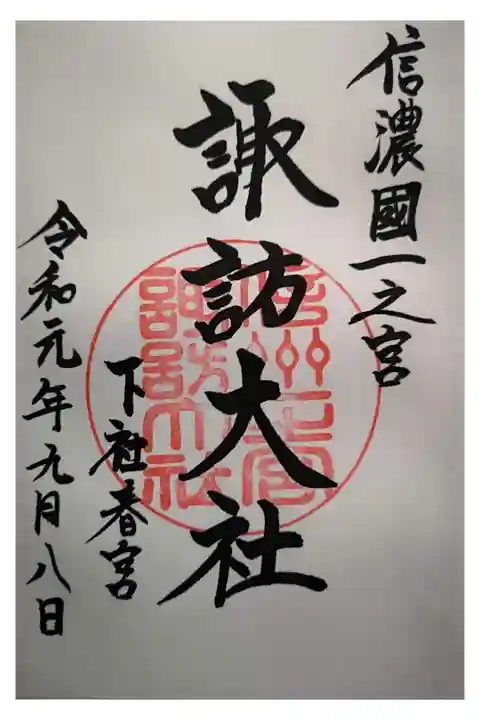 信濃國一之宮
諏訪大社
下社春宮
令和元年九月八日